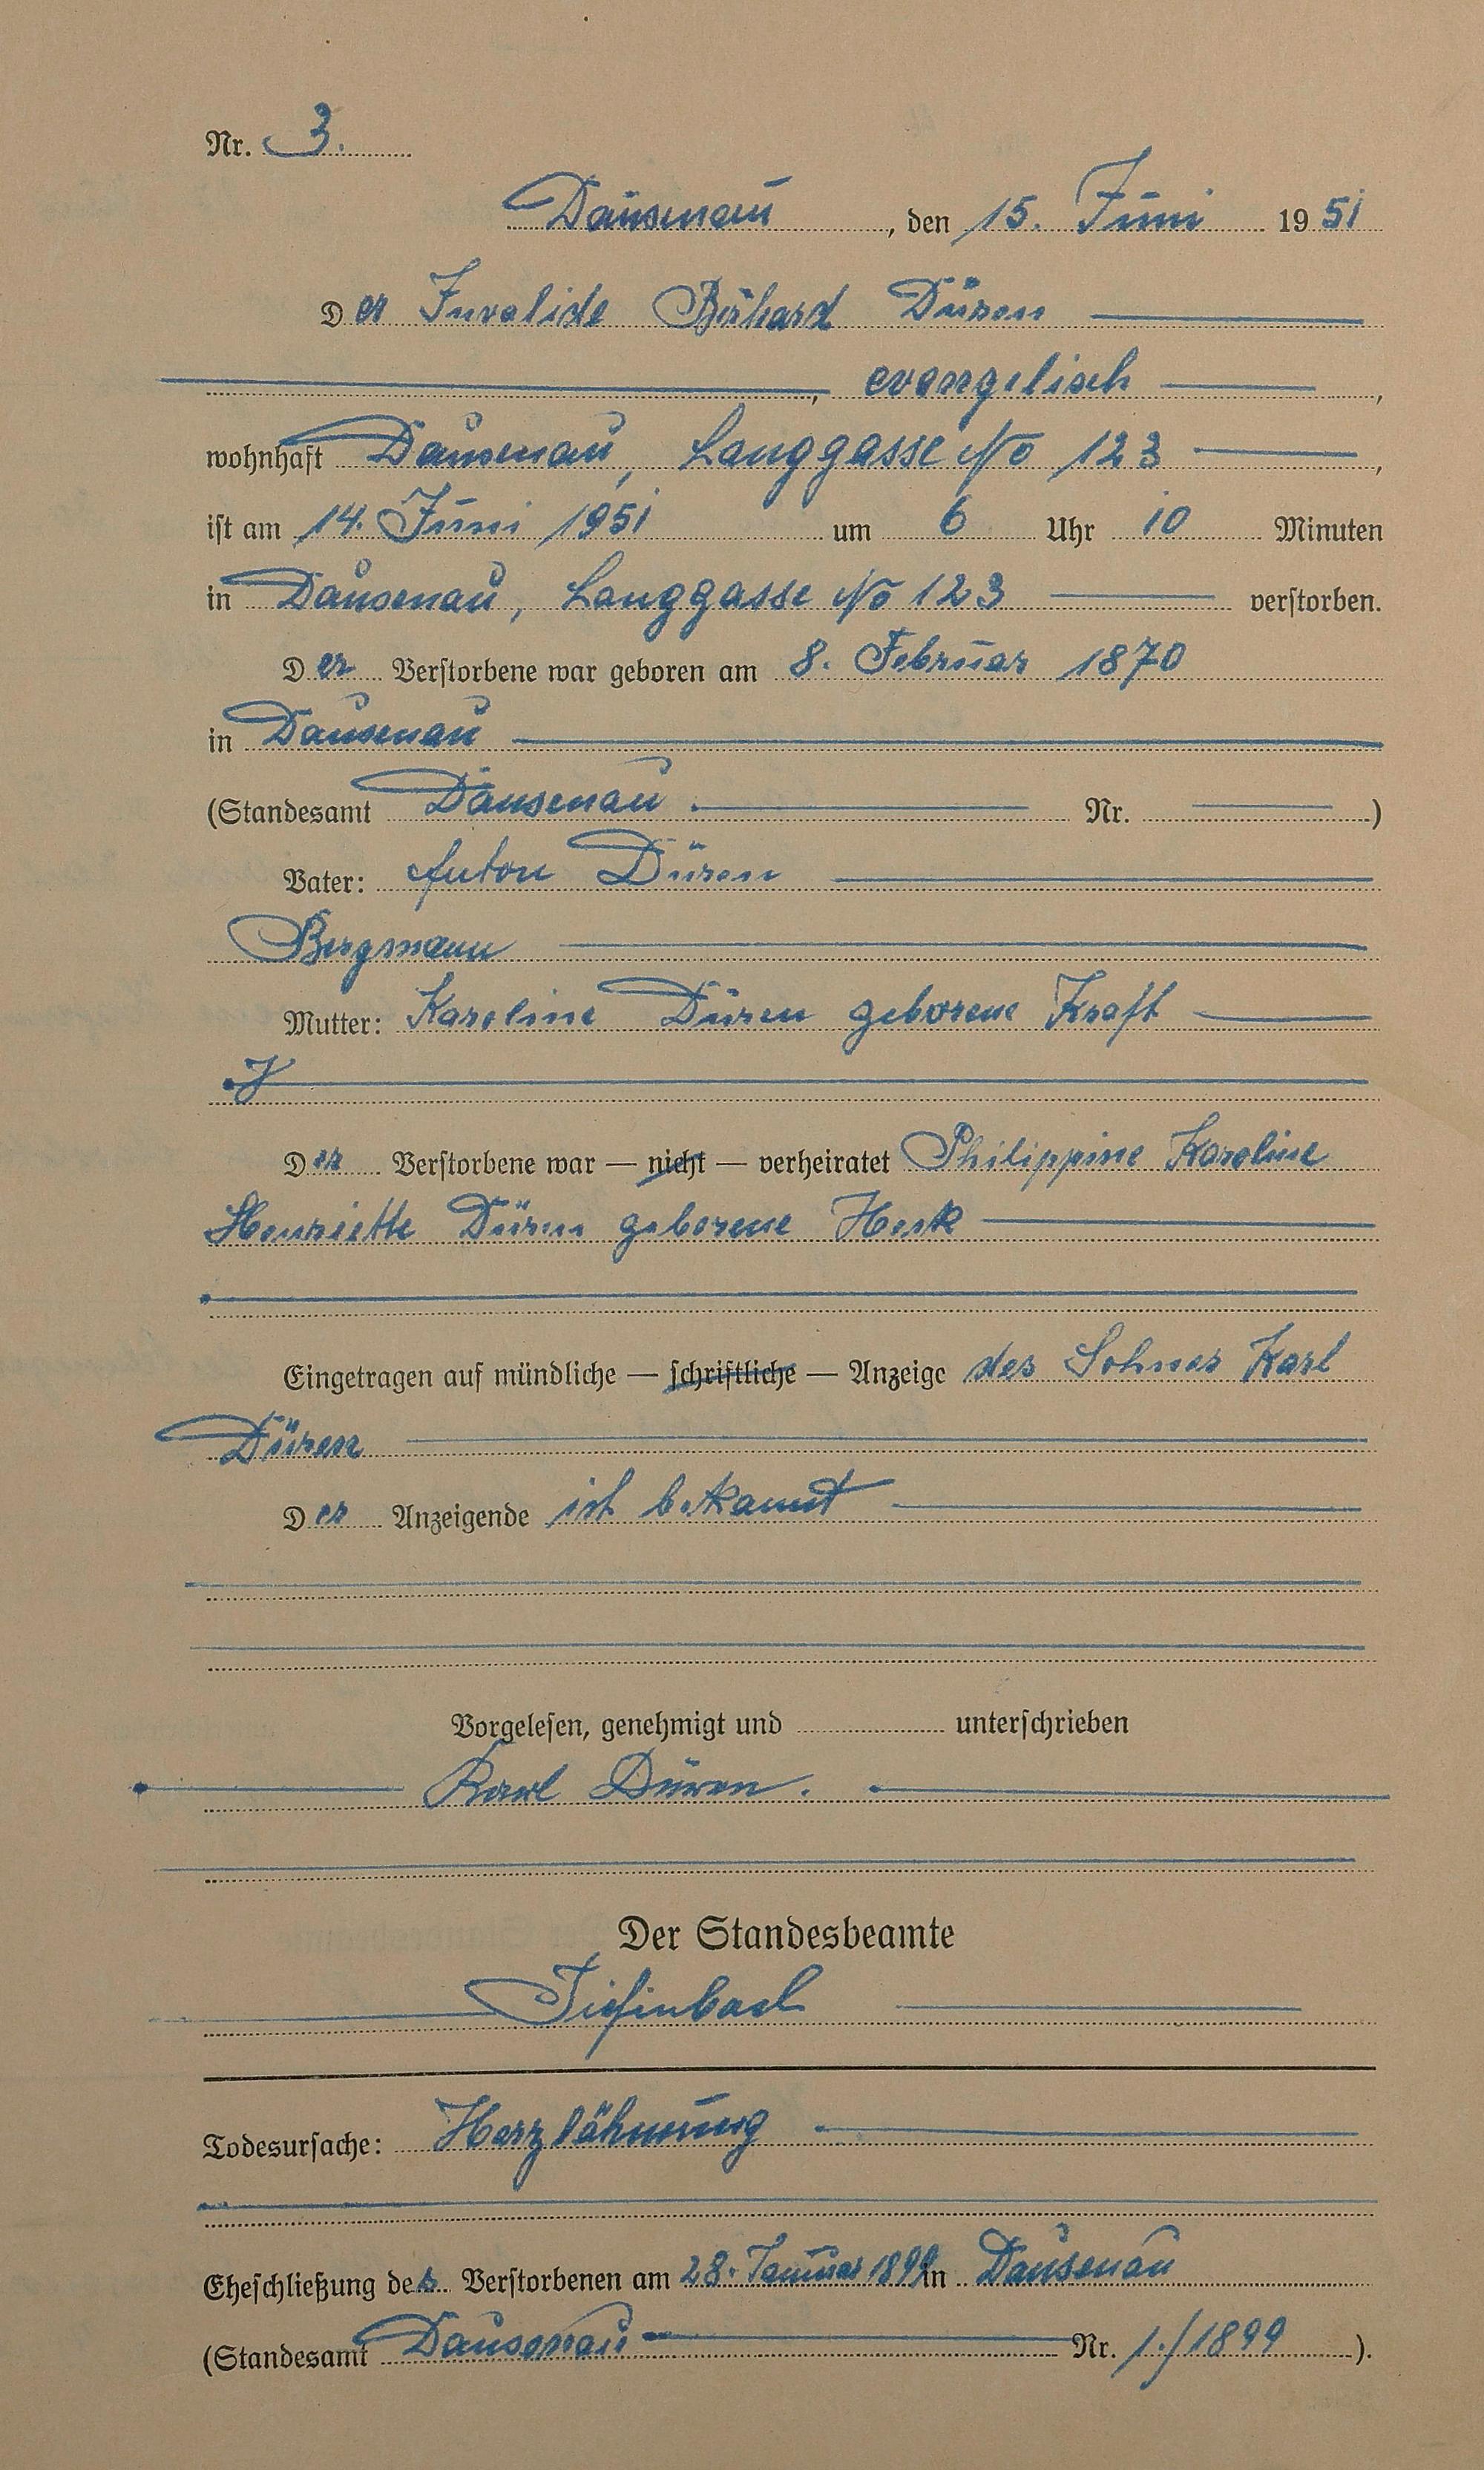 Nr. 3.
Dausenau, den 15. Juni 1951
Der Invalide Düren
, evangelisch,
wohnhaft Dausenau, Langgasse No 123,
ist am 14. Juni 1951 um 6 Uhr 10 Minuten
in Dausenau, Langgasse No 123 verstorben.
Der Verstorbene war geboren am 8. Februar 1870
in Dausenau
(Standesamt Dausenau. Nr. )
Vater: Anton Düren
Bergmann
Mutter: Karoline Düren geborene Kraft
Der Verstorbene war — nicht — verheiratet Philippine Karoline
Henriette Düren geborene
Eingetragen auf mündliche — schriftliche — Anzeige des Sohnes Karl
Düren
Der Anzeigende ist bekannt
Vorgelesen, genehmigt und unterschrieben
Karl Düren.
Der Standesbeamte
Tiefenbach
Todesursache: Herzlähmung
Eheschließung des Verstorbenen am 28. Januar 1899 in Dausenau
(Standesamt Dausenau Nr. 1./1899 ).